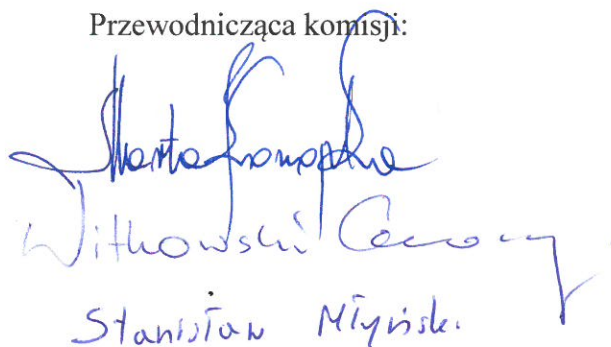 Przewodnicząca komisji:
Marta Konopka
Witkowski Cezary
Stanisław Młyński